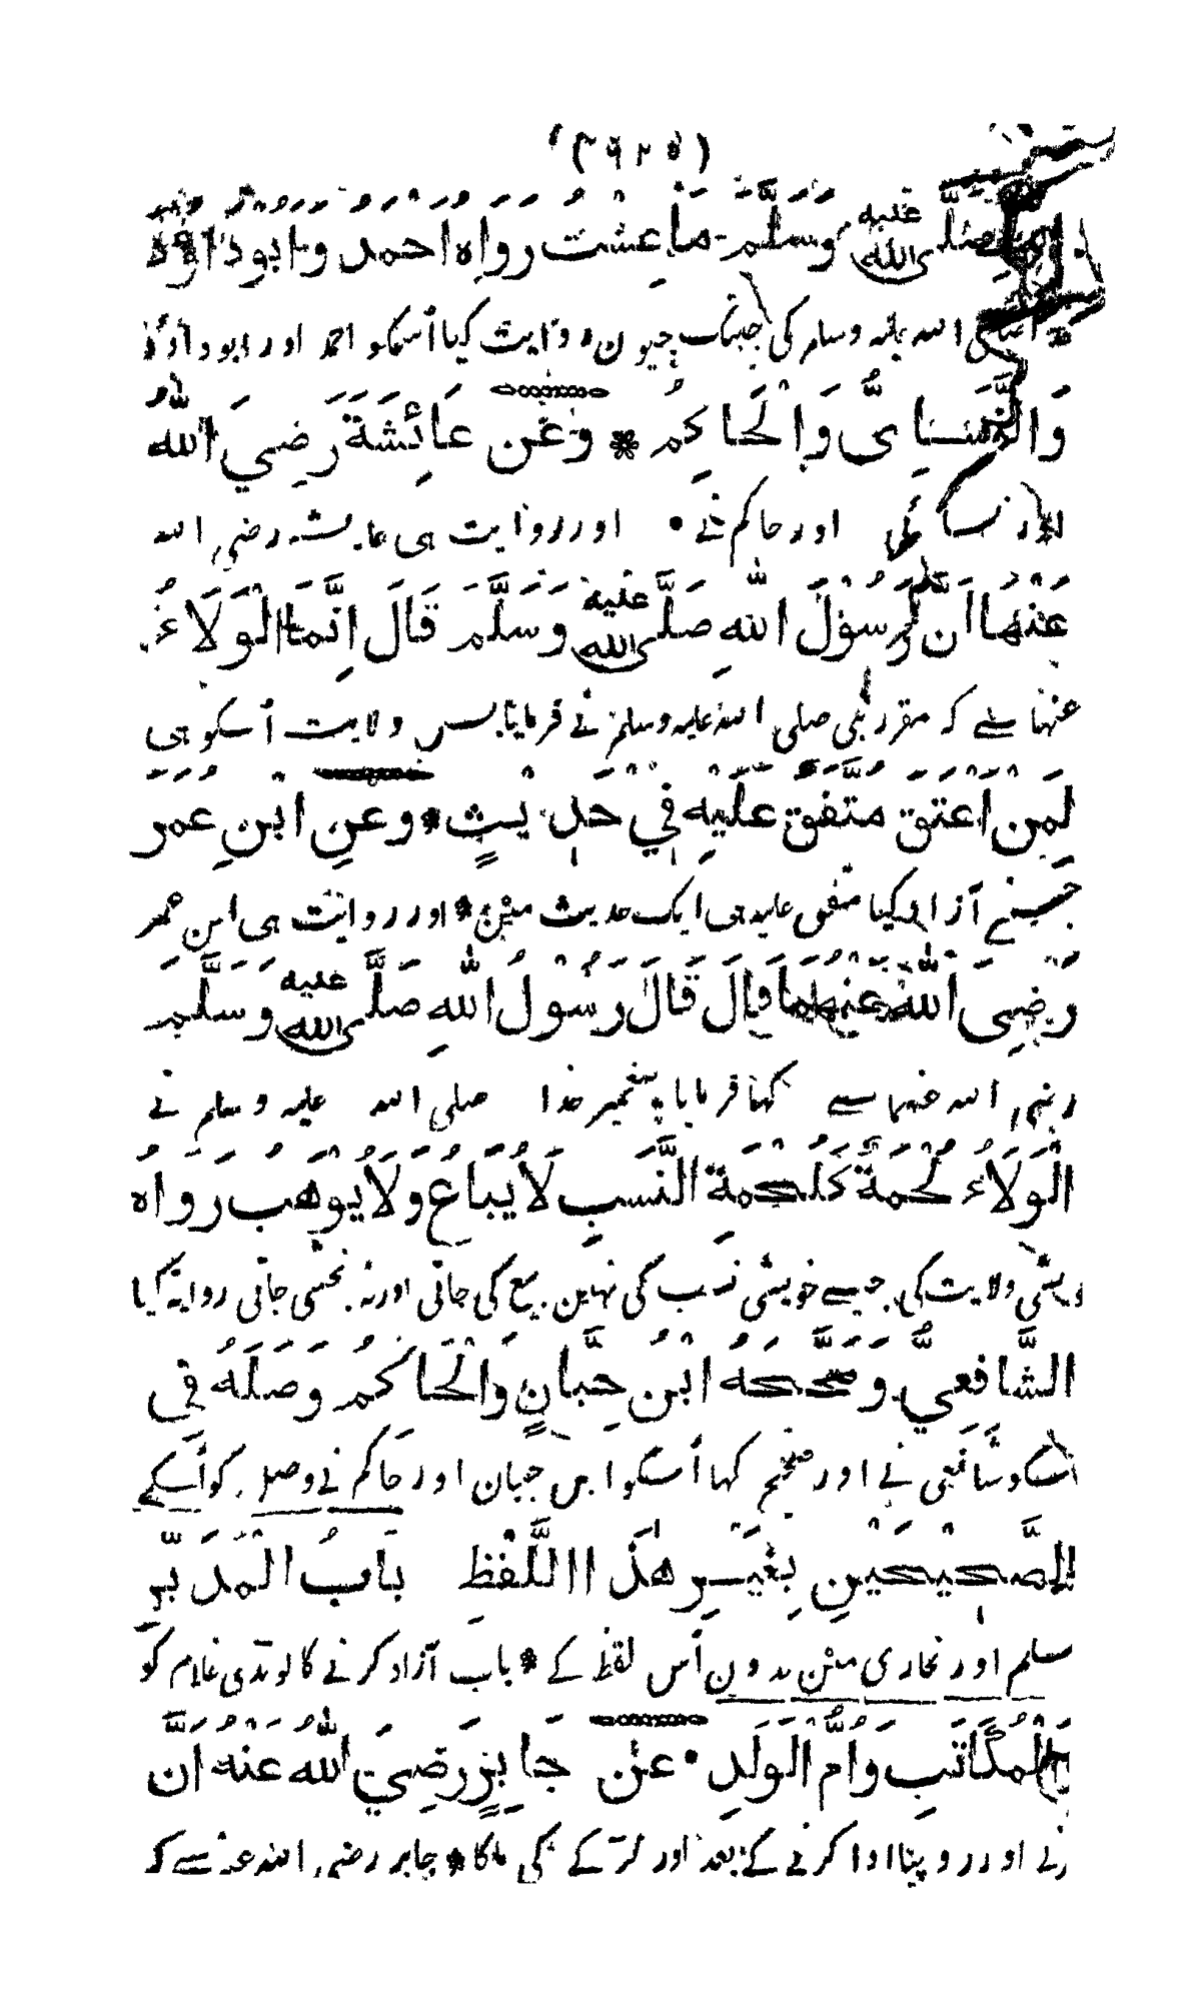 صَلَّى اللهُ عَلَيْهِ وَسَلَّمَ مَا عِشْتُ رَوَاهُ اَحْمَدُ وَاَبُوْدَاوٗدَ
الله علیہ وسلم کی جبتک جیون روایت کیا اُسکو احمد اور ابوداؤد
وَالنَّسَائِىُّ وَالْحَاكِمُ * وَعَنْ عَائِشَةَ رَضِيَ اللهُ
اور نسائی اور حاکم نے • اور روایت ہی عایشہ رضی الله
عَنْهَا اَنَّ رَسُوْلَ اللهِ صَلَّى اللهُ عَلَيْهِ وَسَلَّمَ قَالَ اِنَّمَا الْوَلَاءُ
عنہا سے کہ مقرر نبی صلی الله علیہ وسلم نے فرمایا بس ولایت اُسکو ہی
لِمَنْ اَعْتَقَ مُتَّفَقٌ عَلَيْهِ فِي حَدِيْثٍ * وَعَنِ ابْنِ عُمَرَ
جسنے آزاد کیا متفق علیہ ہی ایک حدیث مین * اور روایت ہی ابن عمر
رَضِيَ اللهُ عَنْهُمَا قَالَ قَالَ رَسُوْلُ اللهِ صَلَّى اللهُ عَلَيْهِ وَسَلَّمَ
رضی الله عنہما سے کہا فرمایا پیغمبر خدا صلی الله علیہ وسلم نے
الْوَلَاءُ لُحْمَةٌ كَلُحْمَةِ النَّسَبِ لَا يُبَاعُ وَلَا يُوْهَبُ رَوَاهُ
ولایت کی جیسے خویشی نسب کی نہین بیع کی جاتی اور نہ بخشی جاتی روایت کیا
الشَّافِعِيُّ وَصَحَّحَهُ ابْنُ حِبَّانٍ وَالْحَاكِمُ وَصَلَهُ فِي
اسکو شافعی نے اور صحیح کہا اُسکو ابن حبان اور حاکم نے وصل کو اُسکے
الصَّحِيْحَيْنِ بِغَيْرِ هٰذَا اللَّفْظِ بَابُ الْمُدَبَّرِ
مسلم اور بخاری مین بدون اُس لفظ کے * باب آزاد کرنے کا لونڈی غلام کو
وَالْمُكَاتَبِ وَاُمِّ الْوَلَدِ • عَنْ جَابِرٍ رَضِيَ اللهُ عَنْهُ اَنَّ
اور روپیا ادا کرنے کے بعد اور لڑکے کی ما کا * جابر رضی الله عنہ سے کہ